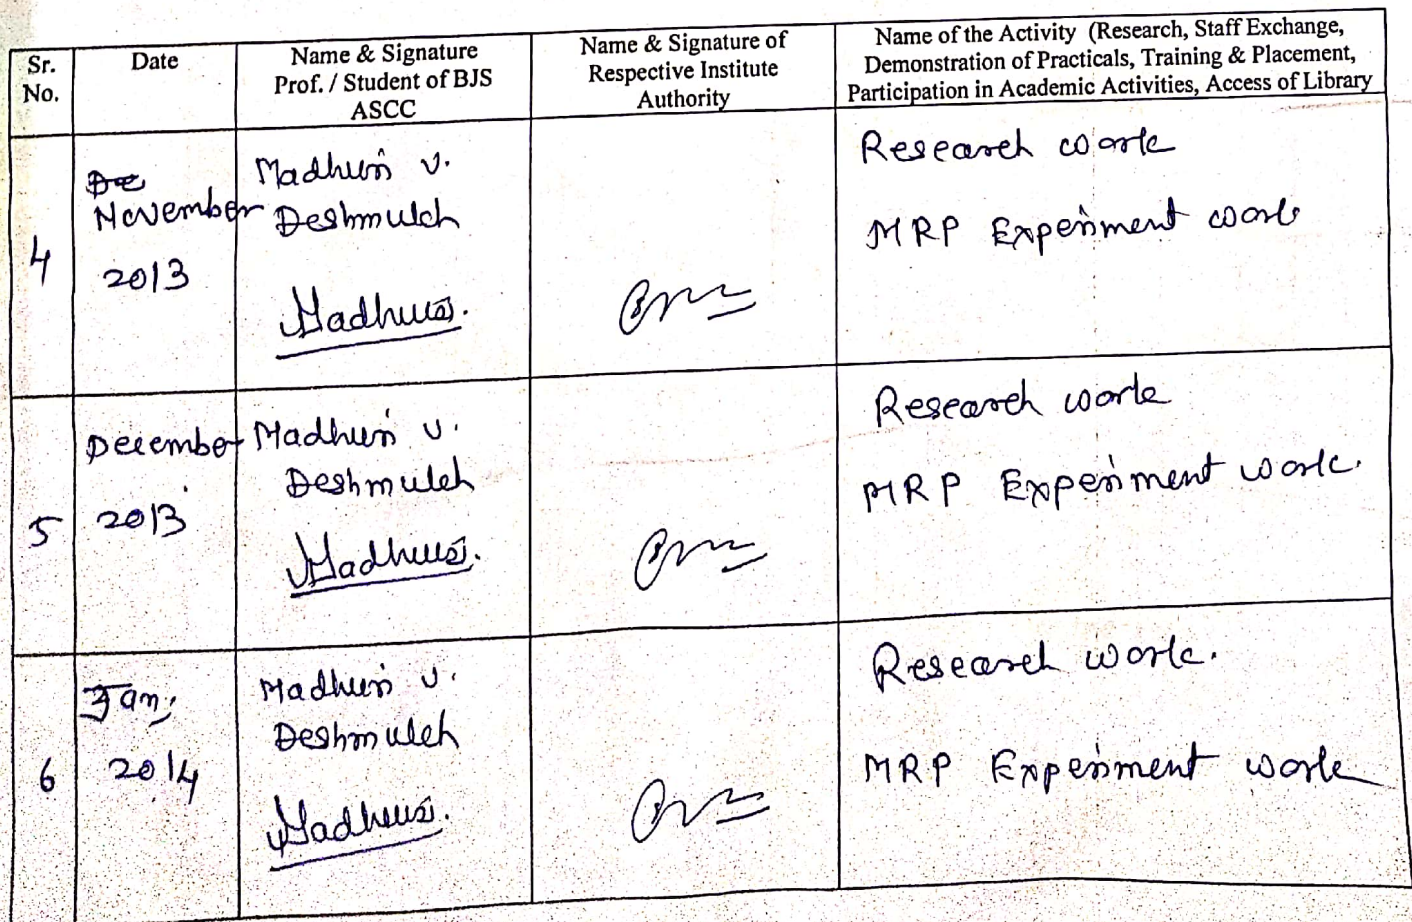 Sr.
No.
Date
Name & Signature
Prof. / Student of BJS
ASCC
Name & Signature of
Respective Institute
Authority
Name of the Activity (Research, Staff Exchange,
Demonstration of Practicals, Training & Placement,
Participation in Academic Activities, Access of Library
4
November
2013
Madhuri V.
Deshmukh
Madhuri.
Research work
MRP Experiment work
5
December
2013
Madhuri V.
Deshmukh
Madhuri.
Research work
MRP Experiment work.
6
Jan,
2014
Madhuri V.
Deshmukh
Madhuri.
Research work.
MRP Experiment work